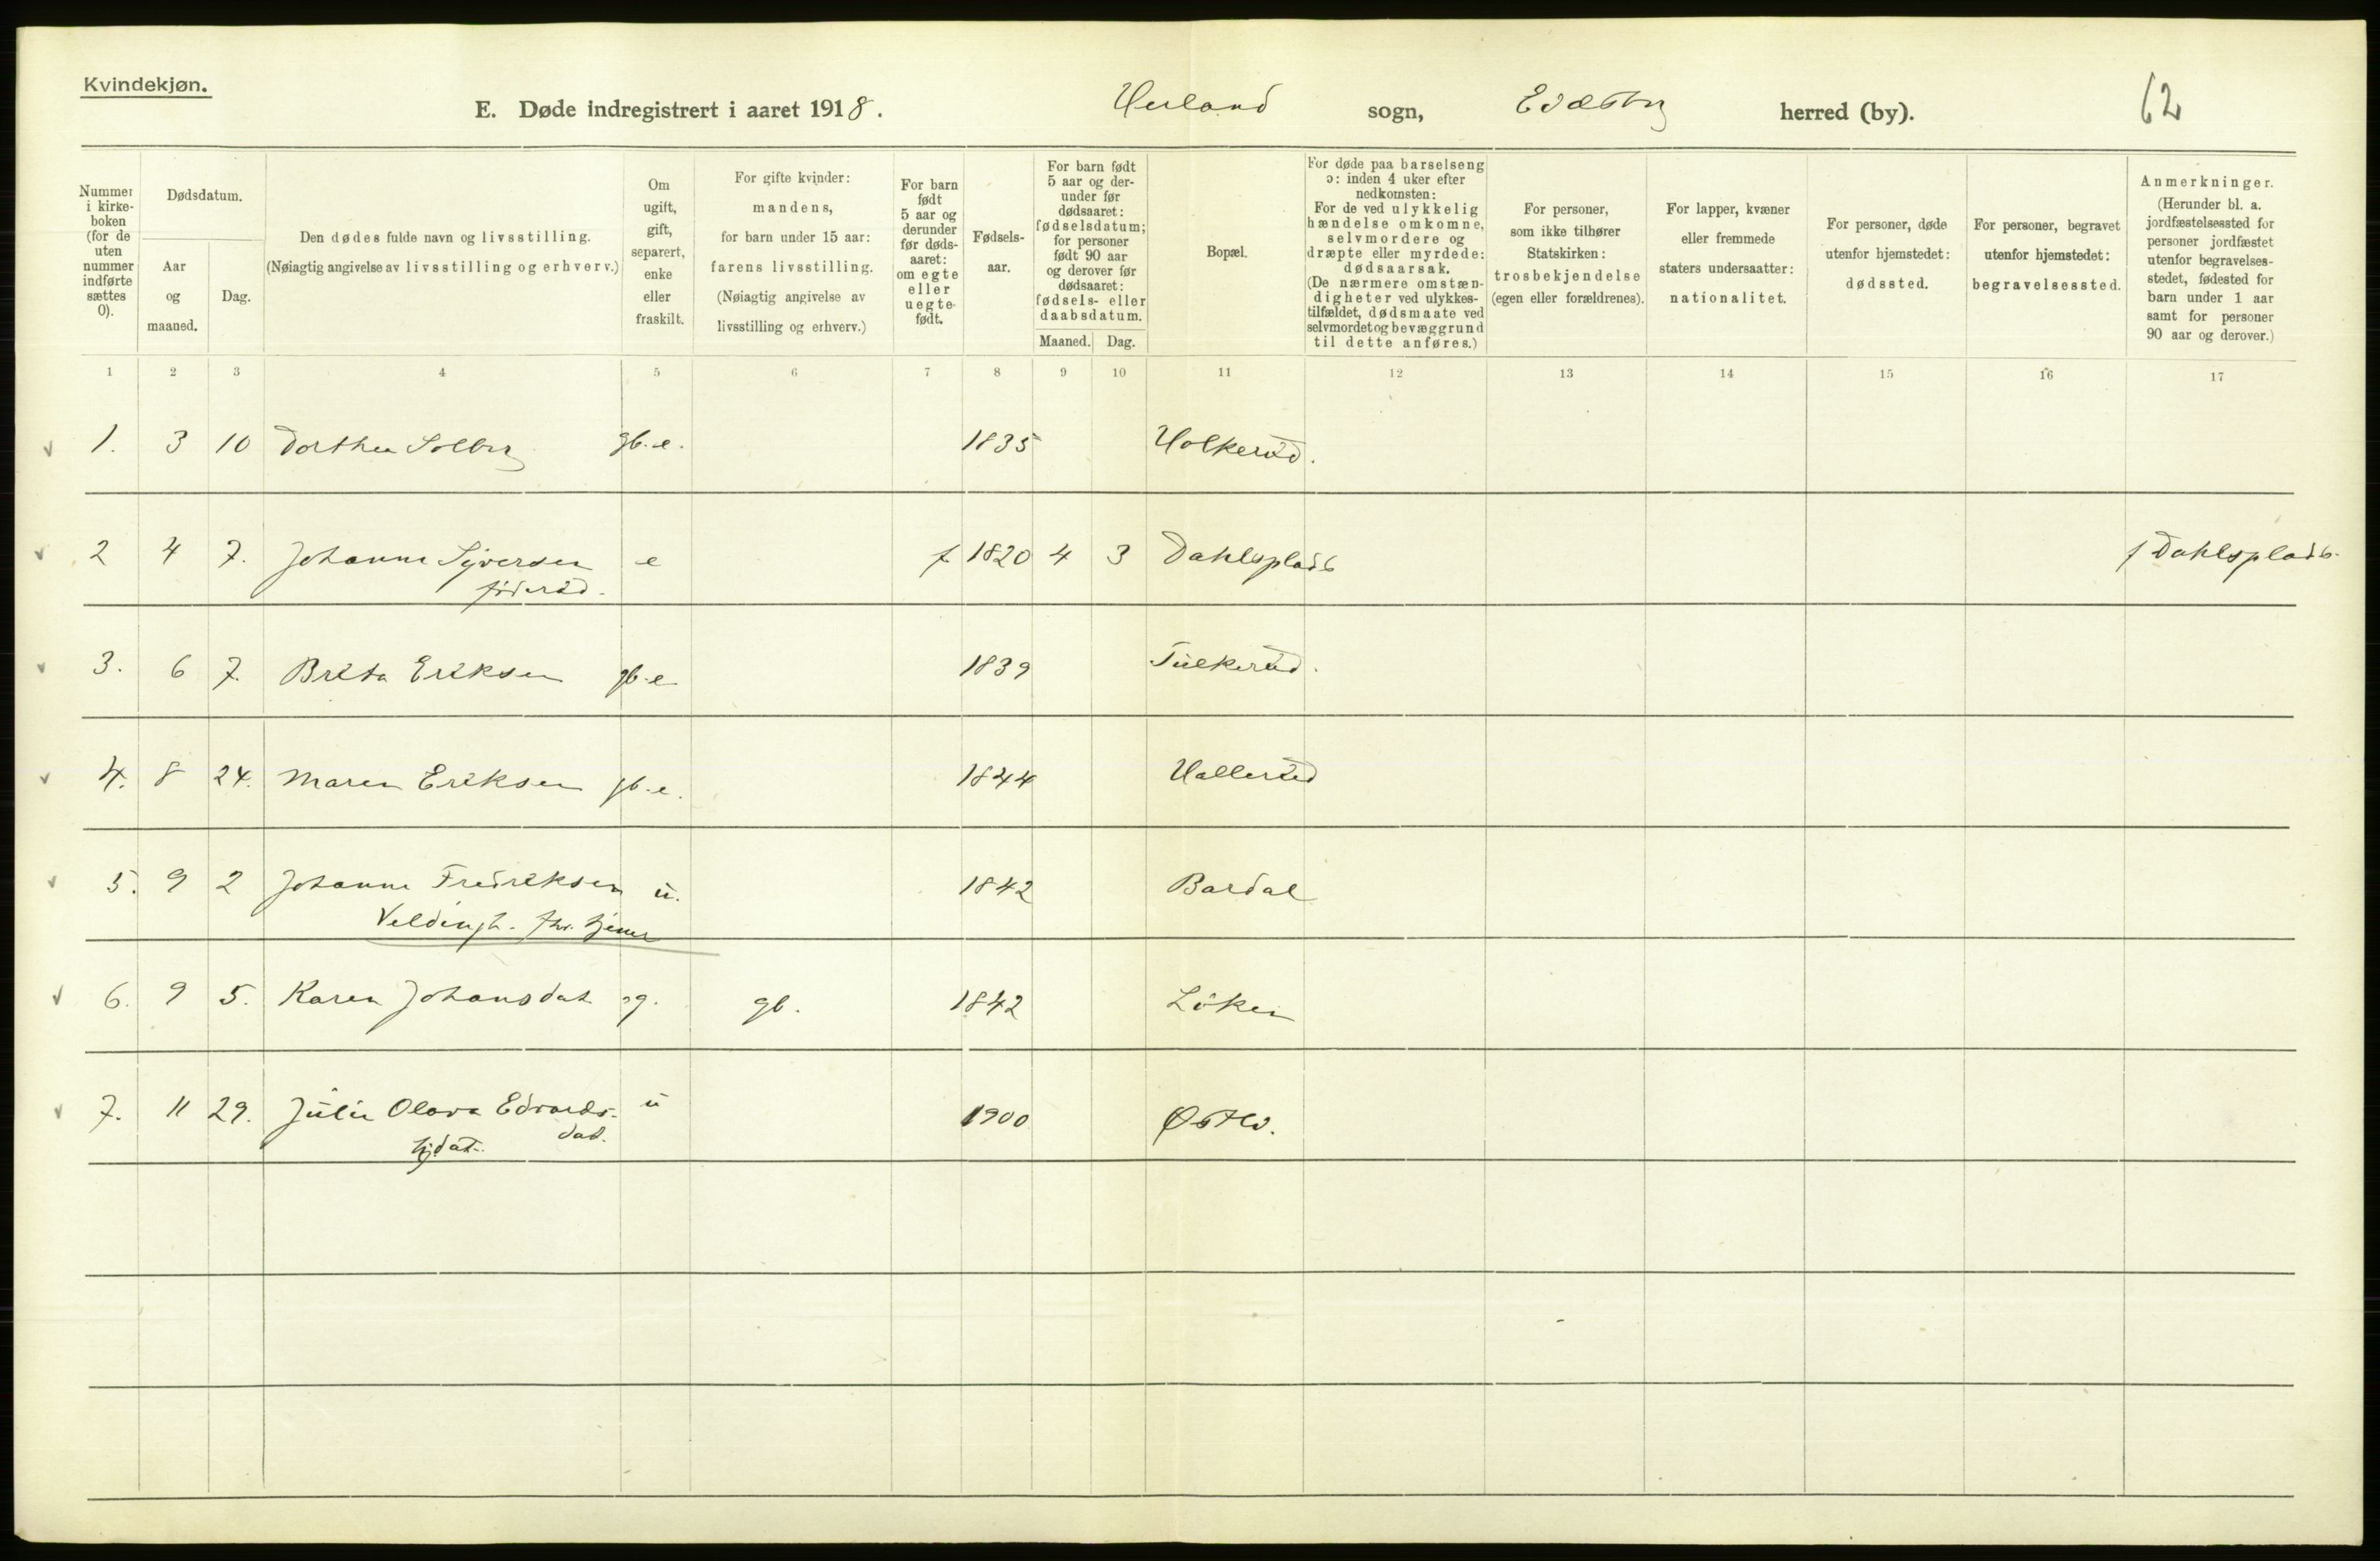 Kvindekjøn.
E. Døde indregistrert i aaret 1918. Herland sogn, Eidsberg herred (by). 62
Nummer i kirkeboken (for de uten nummer indførte sættes 0).
Dødsdatum.
Aar og maaned.
Dag.
Den dødes fulde navn og livsstilling.
(Nøiagtig angivelse av livsstilling og erhverv.)
Om ugift, gift, separert, enke eller fraskilt.
For gifte kvinder: mandens, for barn under 15 aar: farens livsstilling. (Nøiagtig angivelse av livsstilling og erhverv.)
For barn født 5 aar og derunder før dødsaaret: om egte eller uegte født.
Fødselsaar.
For barn født 5 aar og derunder før dødsaaret: fødselsdatum; for personer født 90 aar og derover før dødsaaret: fødsels- eller daabsdatum.
Maaned. Dag.
Bopæl.
For døde paa barselseng ɔ: inden 4 uker efter nedkomsten: For de ved ulykkelig hændelse omkomne, selvmordere og dræpte eller myrdede: dødsaarsak. (De nærmere omstændigheter ved ulykkestilfældet, dødsmaate ved selvmordet og bevæggrund til dette anføres.)
For personer, som ikke tilhører Statskirken: trosbekjendelse (egen eller forældrenes).
For lapper, kvæner eller fremmede staters undersaatter: nationalitet.
For personer, døde utenfor hjemstedet: dødssted.
For personer, begravet utenfor hjemstedet: begravelsessted.
Anmerkninger. (Herunder bl. a. jordfæstelsessted for personer jordfæstet utenfor begravelsesstedet, fødested for barn under 1 aar samt for personer 90 aar og derover.)
1 2 3 4 5 6 7 8 9 10 11 12 13 14 15 16 17
1. 3 10 Dorthea Solberg gb. e. 1835 Holkerud.
2 4 7. Johanne Syversen e f. 1820 4 3 Dahlsplads f Dahlsplads
föderåd.
3. 6 7. Brita Eriksen gb. e 1839 Tülkerud.
4. 8 24. Maren Eriksen gb. e. 1844 Hallerud
5. 9 2 Johanne Fredriksen ü. 1842 Bardal
fhv. tjener
6. 9 5. Karen Johansdat. g. gb. 1842 Löken
7. 11 29. Julie Olava Edvards- ü 1900 Østby.
tjdat. dat.